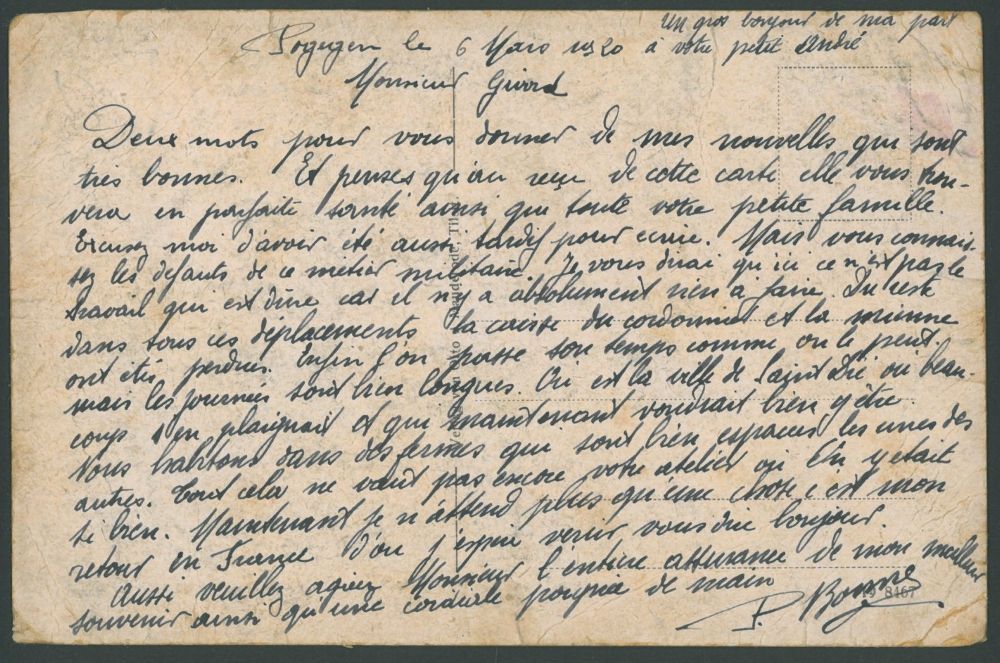 Un gros bonjour de ma part
à votre petit André
Pogegen le 6 Mars 1920
Monsieur Girard
Deux mots pour vous donner de mes nouvelles qui sont
très bonnes. Et penses qu'au reçu de cette carte elle vous trou-
vera en parfaite santé ainsi que toute votre petite famille.
Excusez moi d'avoir été aussi tardif pour ecrire. Mais vous connais-
sez les défauts de ce métier militaire. Je vous dirai qu'ici ce n'est pas le
travail qui est dure car il n'y a absolument rien a faire. Du reste
dans tous ces déplacements la caisse du cordonnier et la mienne
ont étés perdues. Enfin l'on passe son temps comme on le peut.
mais les journées sont bien longues. Ou est la ville de Saint Dié ou beau-
coup s'en plaignait et qui maintenant voudrait bien y être
Nous habitons dans des fermes qui sont bien espacées les unes des
autres. Tout cela ne vaut pas encore votre atelier où l'on y etait
si bien. Maintenant je n'attend plus qu'une chose c'est mon
retour en France d'ou j'espère venir vous dire bonjour.
Aussi veuillez agréez Monsieur l'entière assurance de mon meilleur
souvenir ainsi qu'une cordiale poignée de main
P.
19 8167